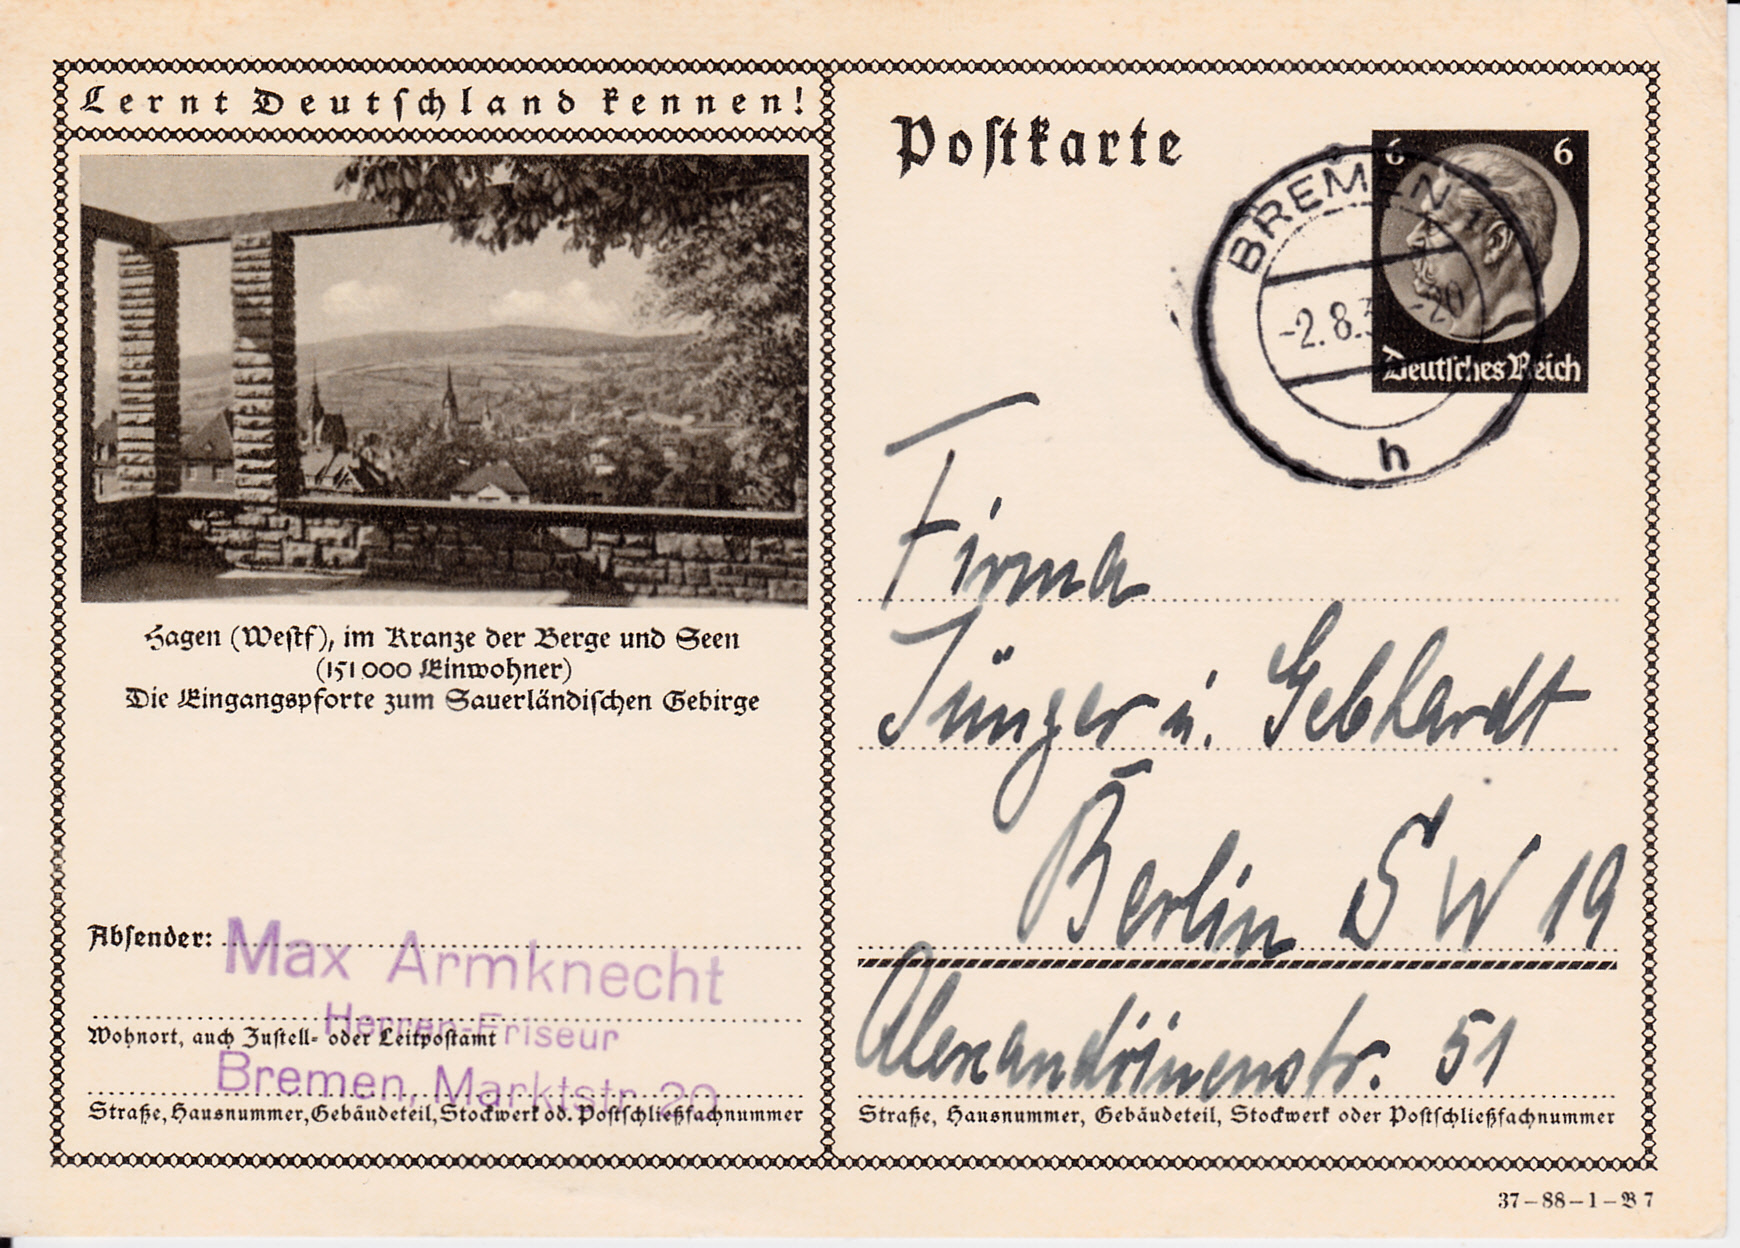 Lernt Deutschland kennen!
Hagen (Westf), im Kranze der Berge und Seen
(151 000 Einwohner)
Die Eingangspforte zum Sauerländischen Gebirge
Absender:
Max Armknecht
Herren-Friseur
Wohnort, auch Zustell- oder Leitpostamt
Bremen, Marktstr. 20
Straße, Hausnummer, Gebäudeteil, Stockwerk od. Postschließfachnummer
Postkarte
6 6
Deutsches Reich
BREMEN
-2.8.3
h
Firma
Jünger u. Gebhardt
Berlin SW 19
Alexandrinenstr. 51
Straße, Hausnummer, Gebäudeteil, Stockwerk oder Postschließfachnummer
37-88-1-B 7